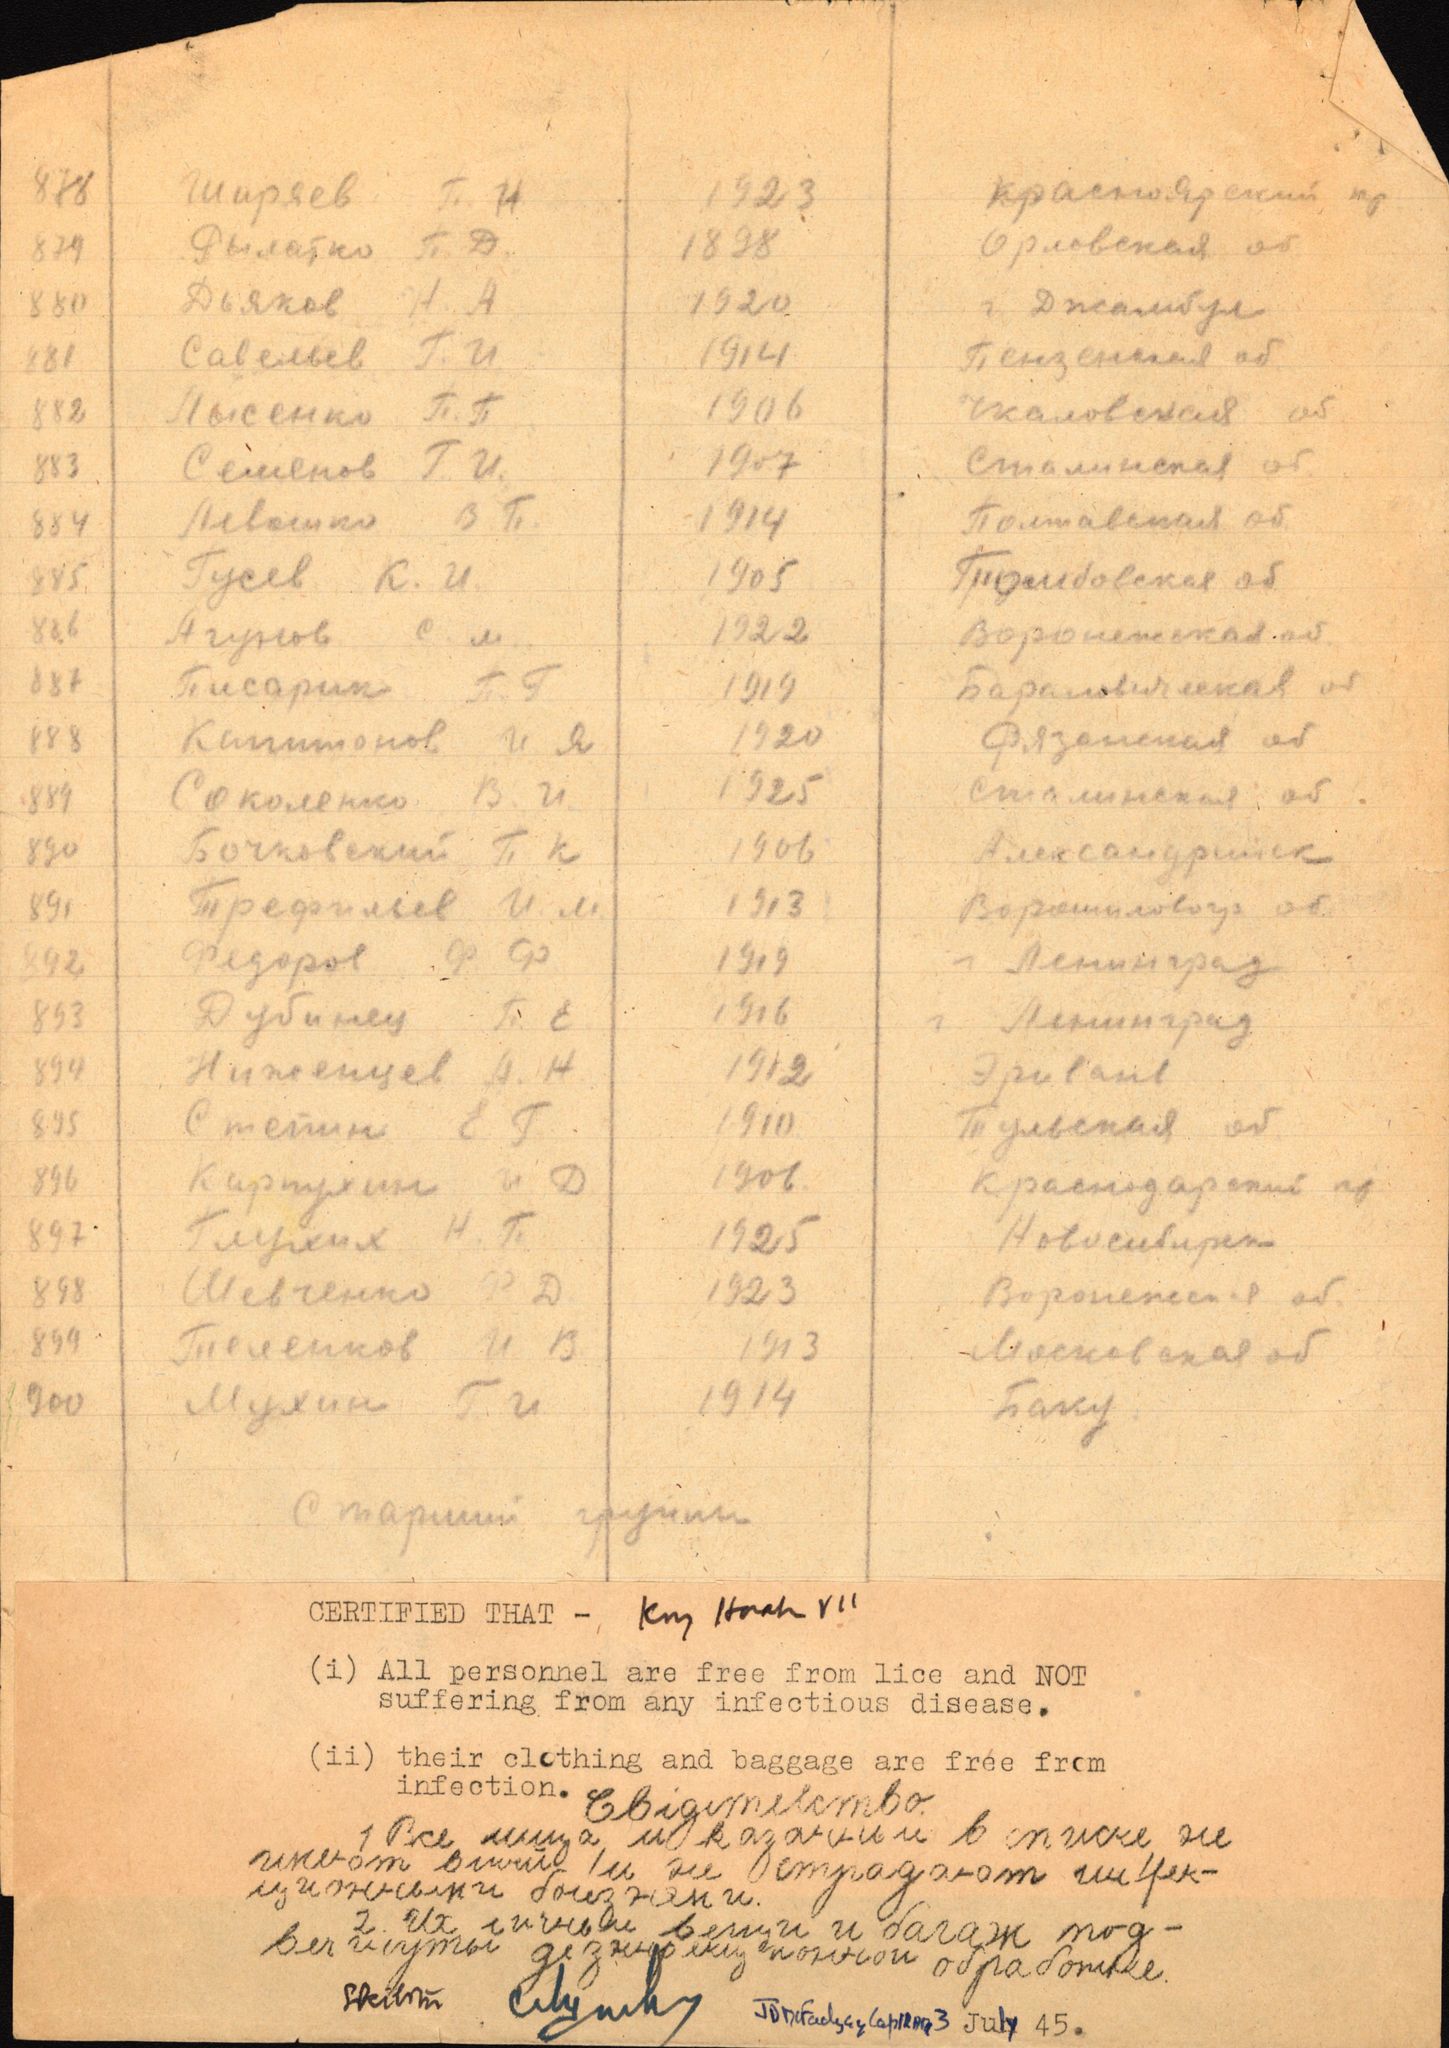 878 Ширяев П. Н 1923 Красноярский кр
879 Рылатко П. Д. 1898 Орловская об
880 Дьяков Н. А 1920 г. Джамбул
881 Савельев Г. И 1914 Пензенская об
882 Лысенко П. П 1906 Чкаловская об
883 Семенов Г. И. 1907 Сталинская об
884 Левошко В П. 1914 Полтавская об
885 Гусев К. И. 1905 Тамбовская об
886 С. М. 1922 Воронежская об.
887 Писарик П. Г 1919 Барановическая об
888 Капитонов И Я 1920 Рязанская об
889 Соколенко В. И. 1925 Сталинская об.
890 Бочковский П К 1906 Александринск
891 Трефильев И. М. 1913 Ворошиловогр об.
892 Федоров Ф Ф 1919 г Ленинград
893 Дубинец П. Е 1916 г Ленинград
894 Ниженцев А. Н 1912 Эривань
895 Степин Е Г 1910 Тульская об
896 Карпухин И Д 1906. Краснодарский кр
897 Глухих Н. П 1925 Новосибирск
898 Шевченко Ф Д. 1923 Воронежская об.
899 Теленков И В 1913 Московская об
900 Мухин Г. И 1914 Баку
Старший группы
CERTIFIED THAT -
(i) All personnel are free from lice and NOT
suffering from any infectious disease.
(ii) their clothing and baggage are free from
infection.
Свідетельство.
1 Все лица указанные в списке не
имеют вшей и не страдают инфек-
ционными болезнями.
2. Их личные вещи и багаж под-
вегнуты дезинфекционной обработке.
3 July 45.